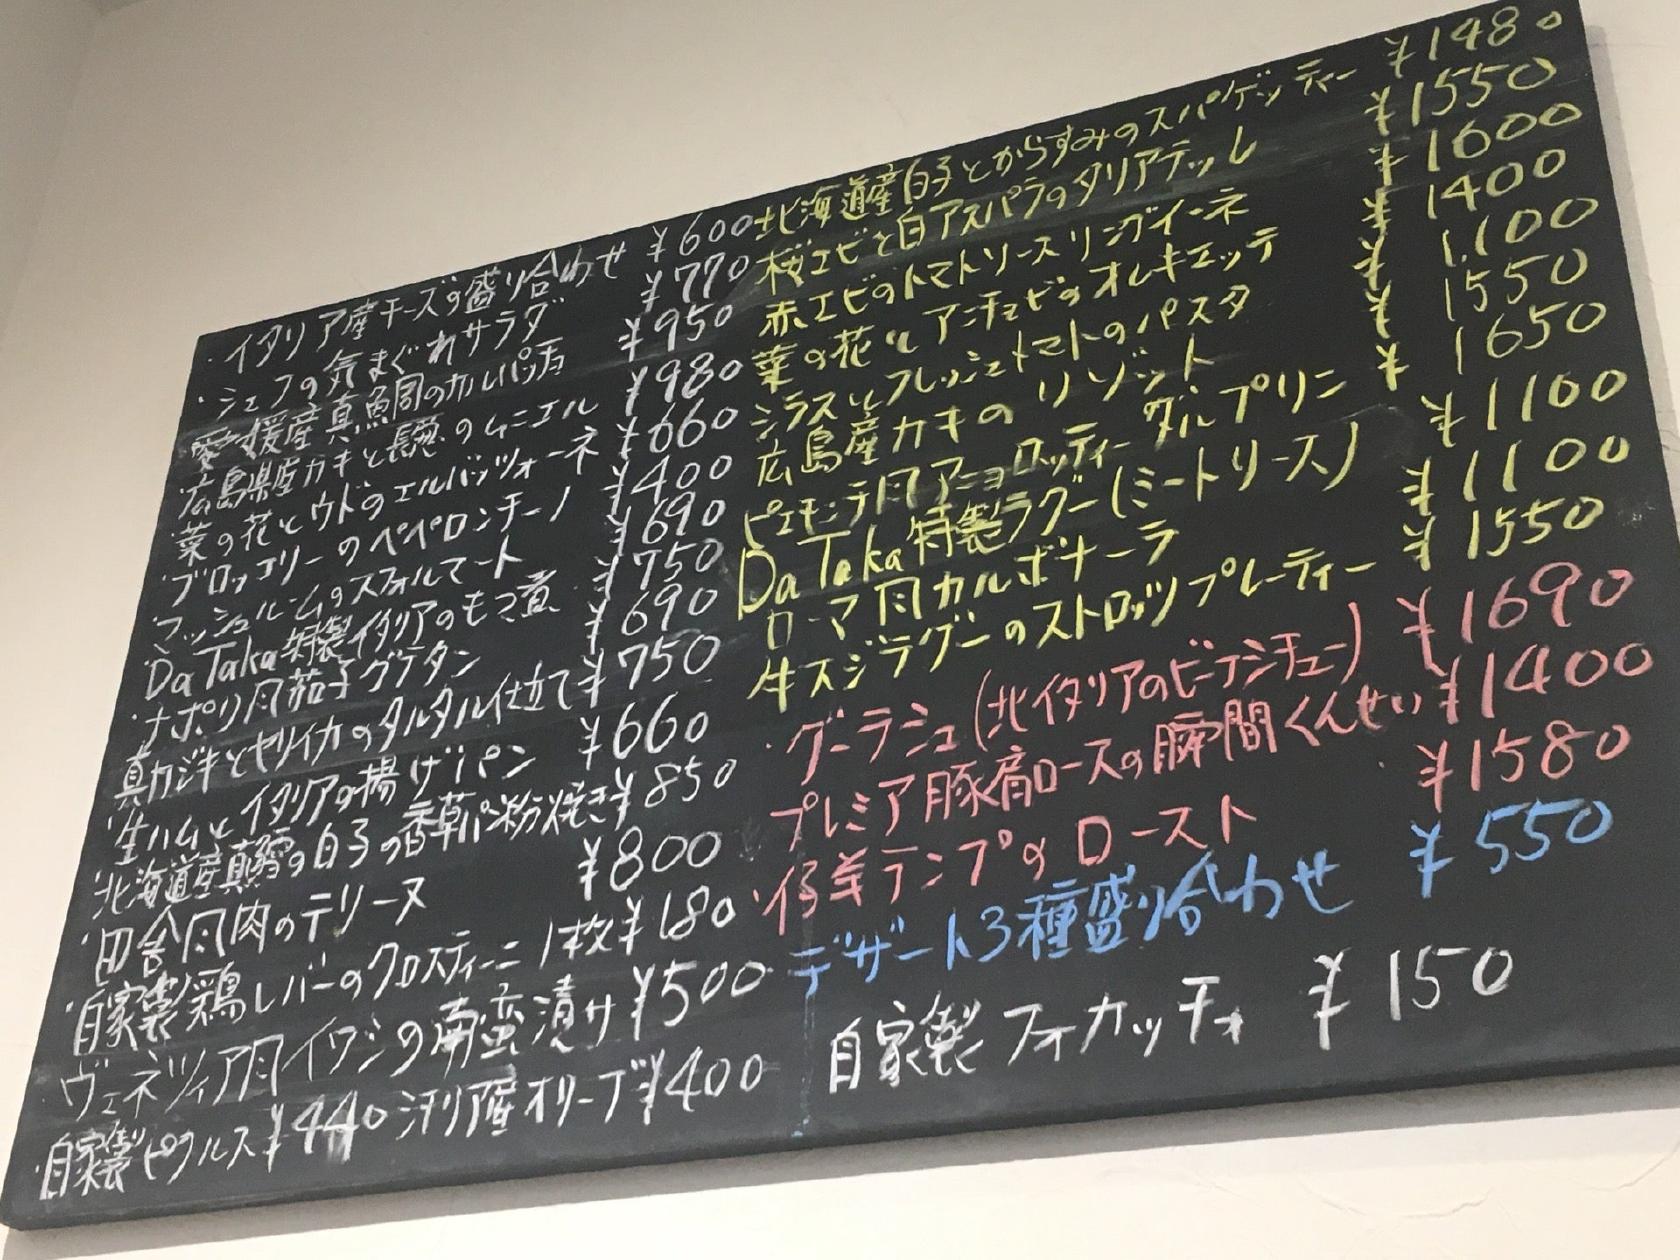 ・イタリア産チーズの盛り合わせ ¥600
・シェフの気まぐれサラダ ¥770
愛媛産真鯛のカルパッチョ ¥950
・広島県産カキと長葱のムニエル ¥980
菜の花とウドのエルバッツォーネ ¥660
・ブロッコリーのペペロンチーノ ¥400
マッシュルームのスフォルマート ¥690
Da Taka特製イタリアのモツ煮 ¥750
・ナポリ風茄子グラタン ¥690
真カジキとヤリイカのタルタル仕立て ¥750
・生ハムとイタリアの揚げパン ¥660
北海道産真鱈の白子の香草パン粉焼き ¥850
・田舎風肉のテリーヌ ¥800
・自家製鶏レバーのクロスティーニ 1枚 ¥180
ヴェネツィア風イワシの南蛮漬け ¥500
・自家製ピクルス ¥440 シチリア産オリーブ ¥400
北海道産白子とからすみのスパゲッティー ¥1480
桜エビと白アスパラのタリアテッレ ¥1550
赤エビのトマトソースリングイーネ ¥1600
菜の花とアンチョビのオレキエッテ ¥1400
シラスとフレッシュトマトのパスタ ¥1,100
広島産カキのリゾット ¥1550
ピエモンテ風アニョロッティーダルプリン ¥1650
Da Taka特製ラグー(ミートソース) ¥1100
ローマ風カルボナーラ ¥1100
牛スジラグーのストロッツプレーティー ¥1550
・グーラシュ(北イタリアのビーフシチュー) ¥1690
プレミア豚肩ロースの瞬間くんせい ¥1400
・仔羊ランプのロースト ¥1580
デザート3種盛り合わせ ¥550
自家製フォカッチャ ¥150